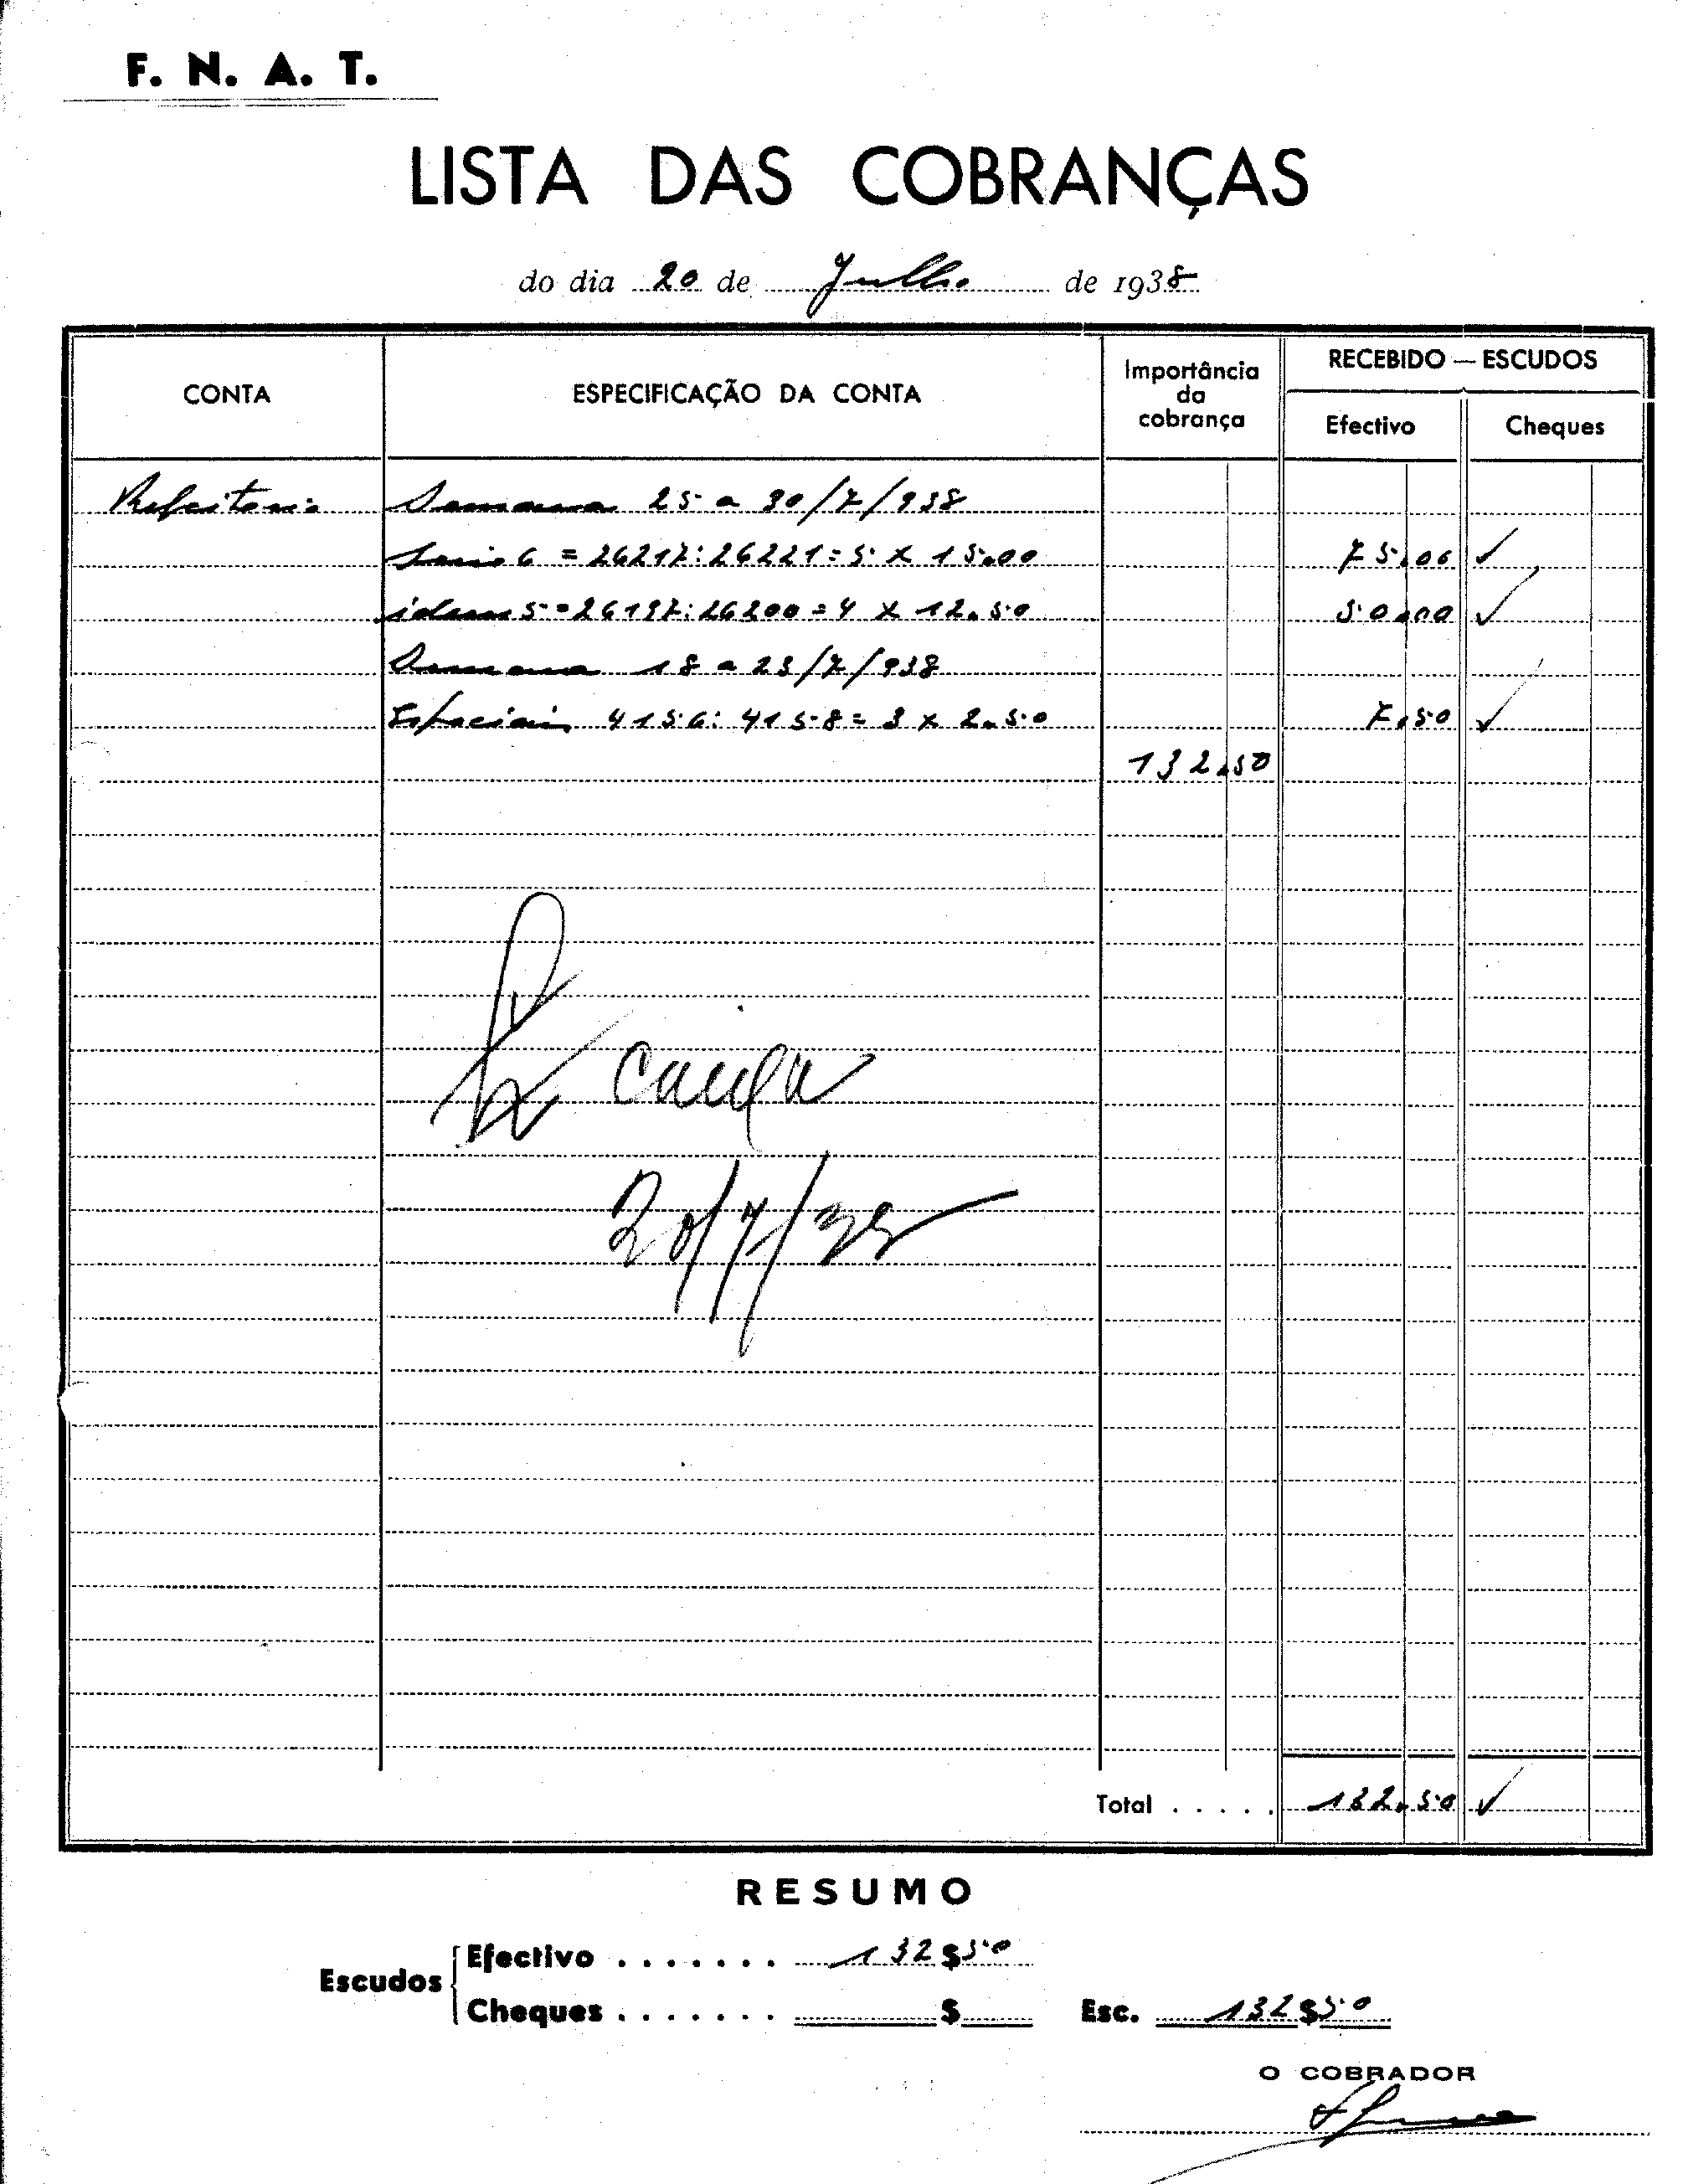 F. N. A. T.
LISTA DAS COBRANÇAS
do dia 20 de Julho de 1938
CONTA ESPECIFICAÇÃO DA CONTA Importância da cobrança RECEBIDO — ESCUDOS
Efectivo Cheques
Refeitorio Semana 25 a 30/7/938
Serie 6 = 26217: 26221 = 5 x 15.00 75.00
idem 5 = 26197: 26200 = 4 x 12.50 50.00
Semana 18 a 23/7/938
Especiais 4156: 4158 = 3 x 2.50 7.50
132.50
caixa
20/7/38
Total . . . . . 132.50
RESUMO
Escudos
Efectivo . . . . . . . 132$50
Cheques . . . . . . . $ Esc. 132$50
O COBRADOR